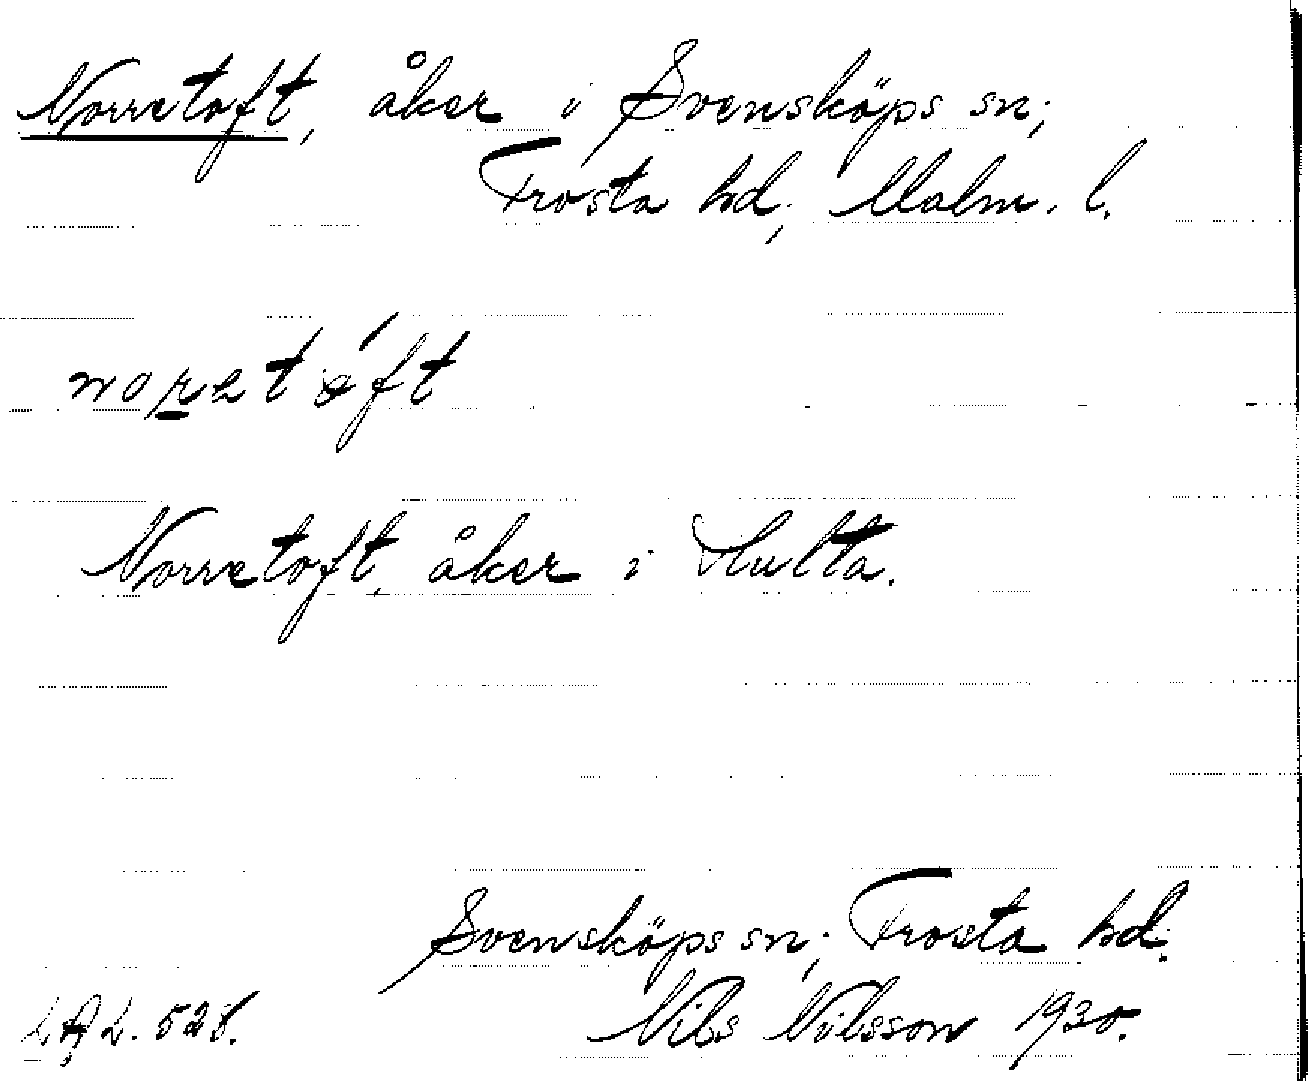 Norretoft, åker i Svensköps sn;
Trosta hd; Malm. l.
noret óft
Norretoft, åker i Hulta.
Svensköps sn; Frosta hd.
L.A.L. 528. Nils Nilsson 1930.